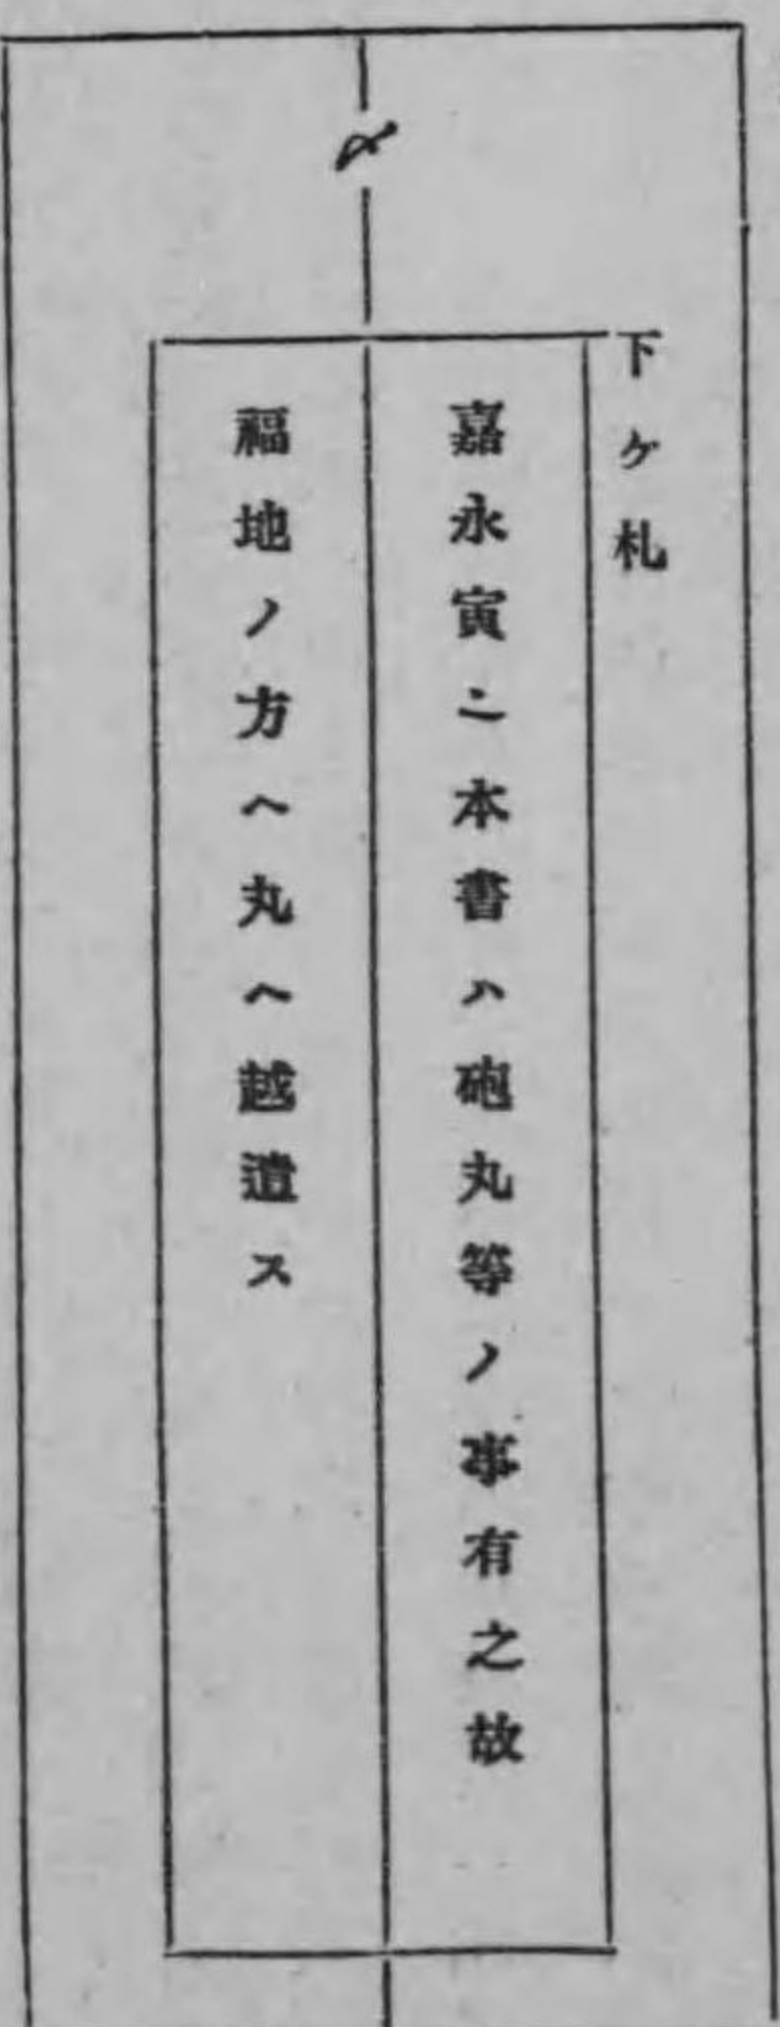 下ケ札
嘉永寅ニ本書ハ砲丸等ノ事有之故
福地ノ方ヘ丸ヘ越遣ス
〆